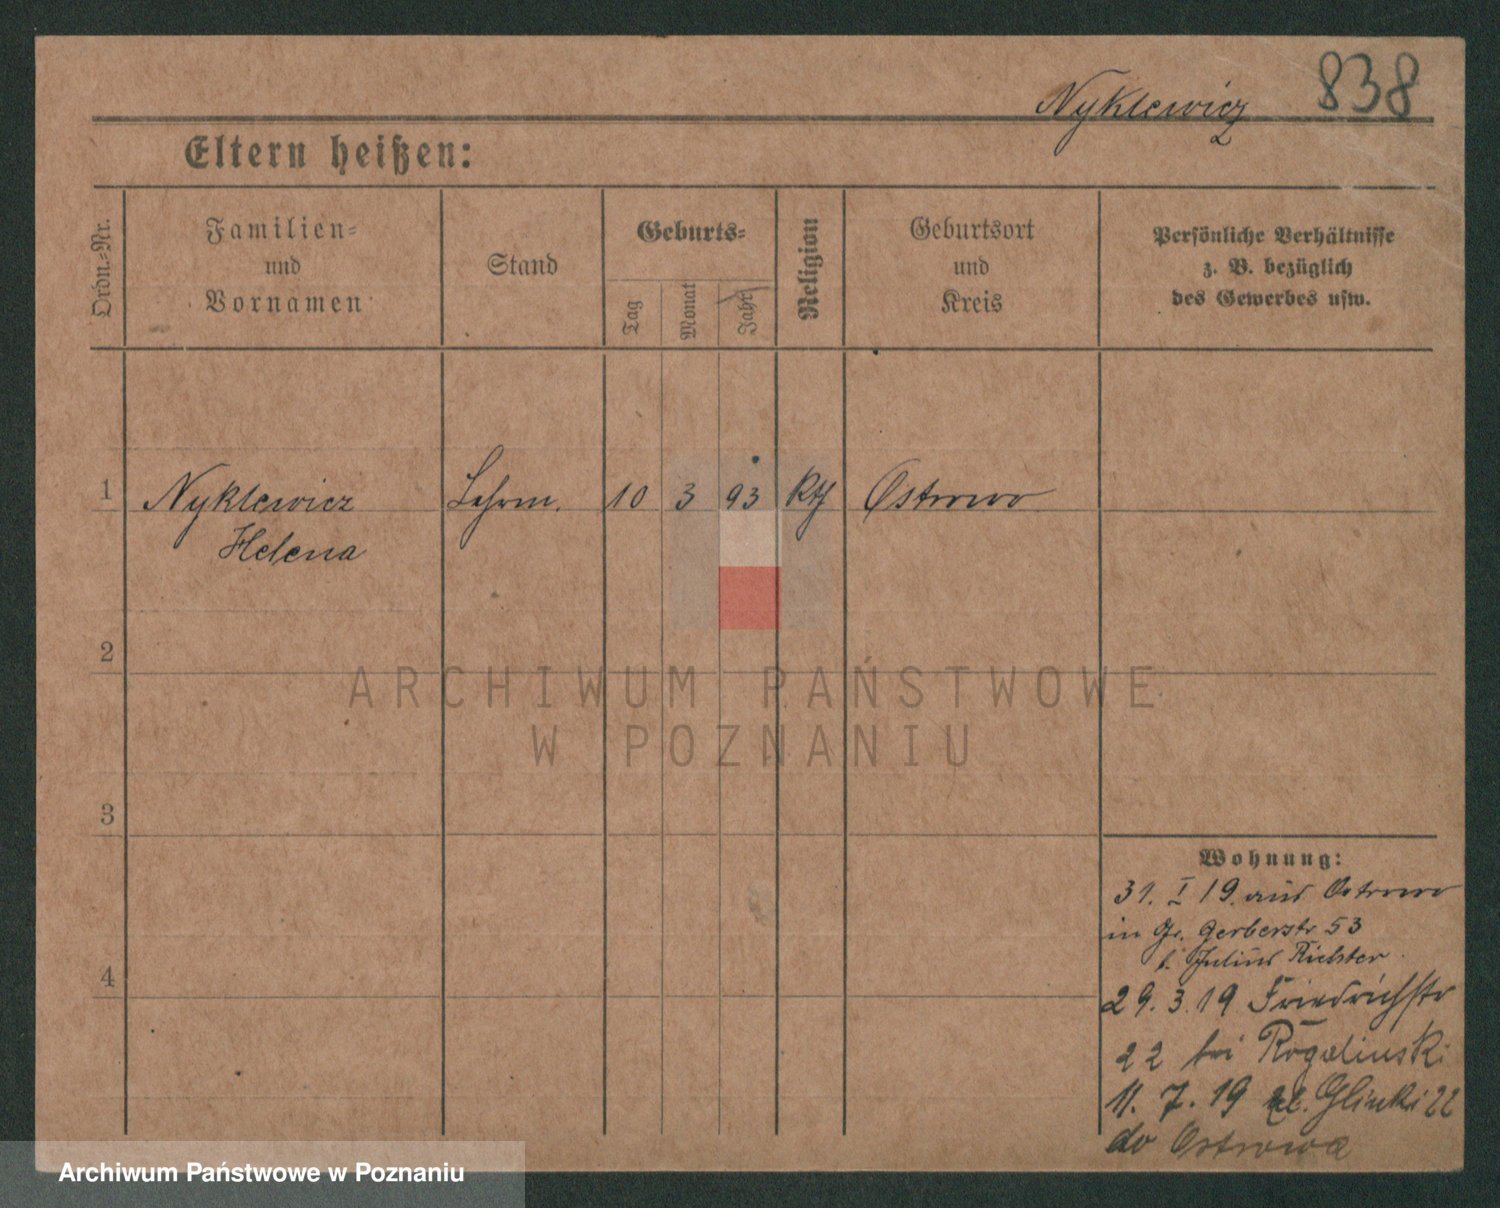 Nyklewicz 838
Eltern heißen:
Ordn.-Nr.
Familien-
und
Vornamen
Stand
Geburts-
Tag
Monat
Jahr
Religion
Geburtsort
und
Kreis
Persönliche Verhältnisse
z. B. bezüglich
des Gewerbes usw.
1 Nyklewicz Lehrm. 10 3 93 kth Ostrowo
Helena
2
3
4
ARCHIWUM PAŃSTWOWE
W POZNANIU
Wohnung:
31. I 19. aus Ostrowo
in Gr. Gerberstr 53
b. Julius Richter.
29. 3. 19 Friedrichstr
22 bei Rogalinski
11. 7. 19 Glinki 22
do Ostrowa
Archiwum Państwowe w Poznaniu